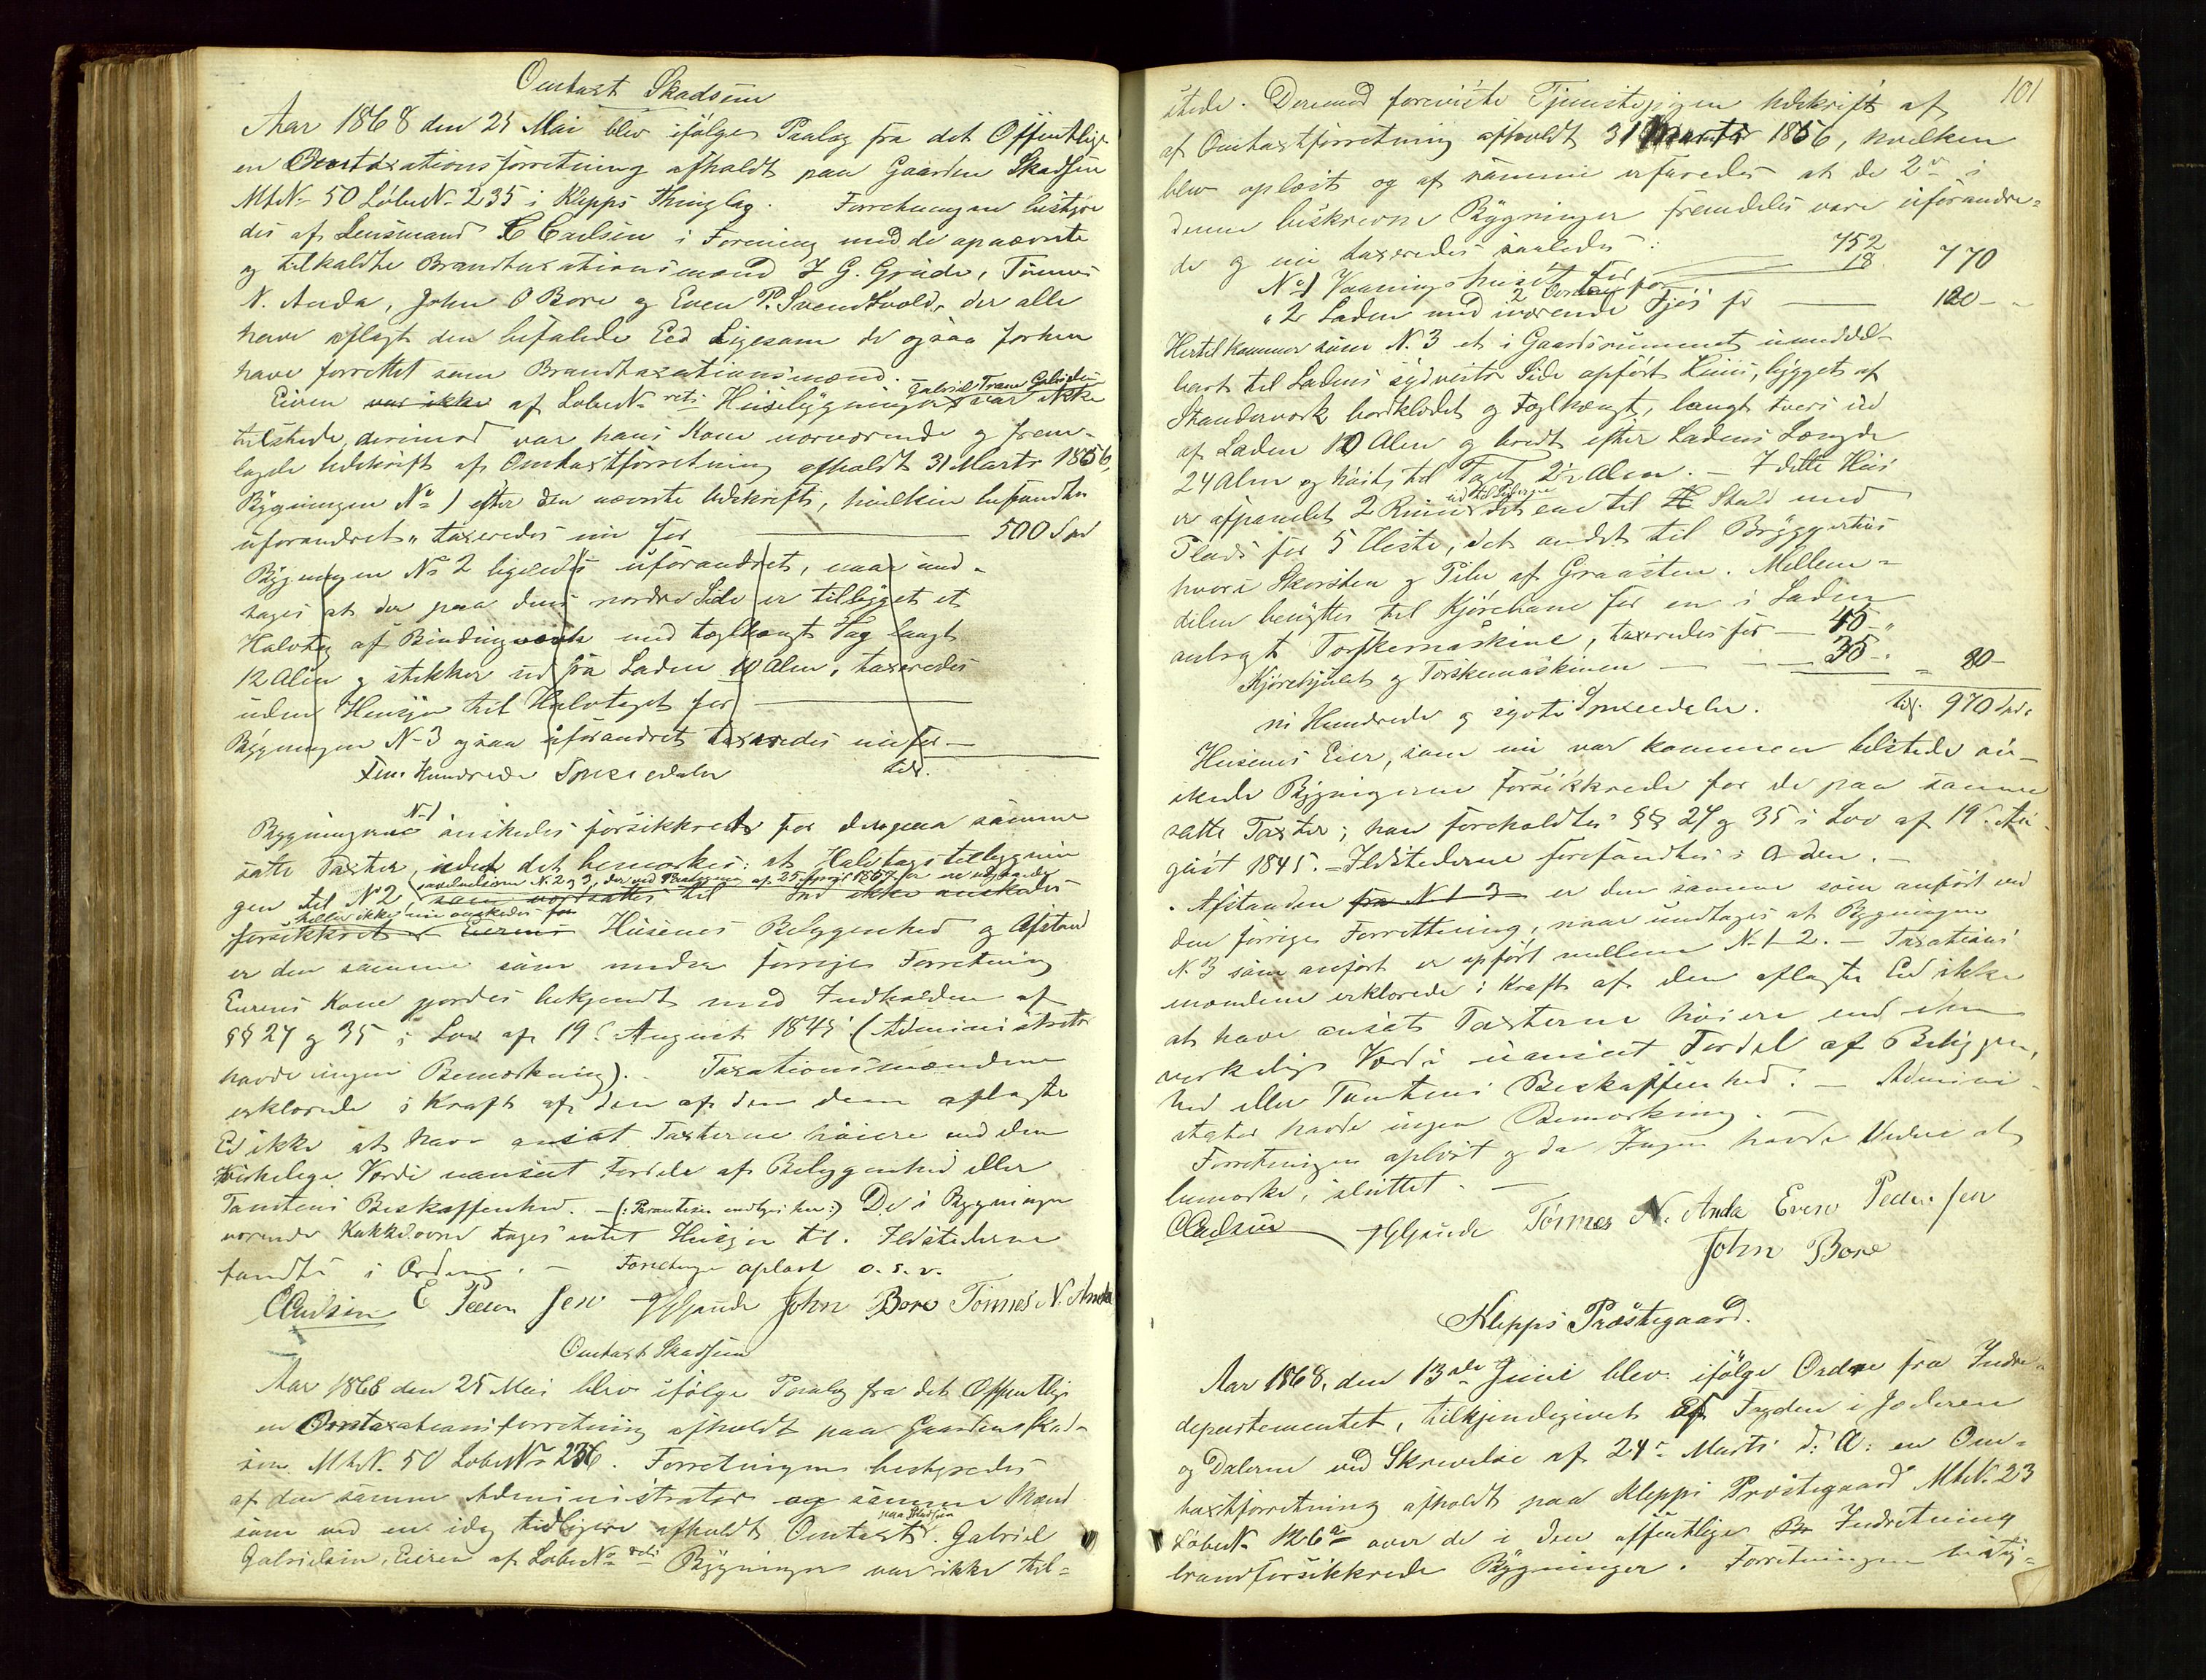 Omtaxt Skadsem
Aar 1868 den 25 Mai blev ifølge Paalæg fra det Offentlige
en Omtaxationsforretning afholdt paa Gaarden Skadsem
MtN. 50 LøbeN. 235 i Klepps Thinglag. Forretningen bestyre
des af Lensmand C Carlsen i Forening med de opnævnte
og tilkaldte Brandtaxationsmænd J G. Grude, Tønnes
N. Anda, John O Bore og Even P. Svendsvold, der alle
have aflagt den befalede Eed Ligesom de ogsaa forhen
have forrettet som Brandtaxationsmænd.
Eieren var ikke af LøbeN. rets Husebygninger Gabriel Trane Gabrielsen var ikke
tilstede, derimod var hans Kone nærværende og frem-
lagde Udskrift af Omtaxtforretning afholdt 31 Marts 1856,
Bygningen No 1 efter den nævnte Udskrift, hvilken befandtes
uforandret, taxeredes nu for 500 Spd
Bygningen No 2 ligeledes uforandret, naar und-
tages at der paa dens nordre Side er tilbygget et
Halvtag af Bindingværk med teglhængt Tag langt
12 Alen og stikker ud fra Laden 10 Alen, taxeredes
uden Hensyn til Halvtaget for
Bygningen N-3 ogsaa uforandret taxeredes nu for -
Fem Hundrede Speciedaler tils.
Bygningerne N-1 ønskedes forsikkrede for den paa samme
satte Taxter, idet det bemærkes: at Halvtagstilbygnin
gen til No 2, saavelsom N. 2 og 3, der ved Brandprøven af 25 April 1857 er udgaaede
som vorsattes til Spd ikke ønskedes
heller ikke nu ønskedes for
forsikkret Eierens Husenes Beliggenhed og Afstand
er den samme som under forrige Forretning
Eierens Kone gjordes bekjendt med Indholden af
§§ 27 og 35 i Lov af 19de August 1845 (Administrator
havde ingen Bemærkning). Taxationsmændene
erklærede i Kraft af den af dem aflagte
Ed ikke at have ansat Taxterne høiere end den
virkelige Værdi uanseet Fordele af Beliggenhed eller
Tomtens Beskaffenhed. - (: Parantesen udtages her:) De i Bygningen
værende Kakkelovne tages intet Hensyn til. Ildstederne
fandtes i Orden. - Forretningen oplæst o. s. v.
CCarlsen E Pedersen JGGrude John Bore Tønnes N. Anda
Omtaxt Skadsem
Aar 1868 den 25 Mai blev ifølge Paalæg fra det Offentlige
en Omtaxationsforretning afholdt paa Gaardens Skad-
sem MtN. 50 LøbeNo 236. Forretningen bestyredes
af den samme Administrator og samme Mænd
som ved en idag tidligere afholdt Omtaxt paa Skadsem. Gabriel
Gabrielsen, Eieren af LøbeNo rets Bygninger var ikke til-
101
stede. Derimod foreviste Tjenestepigen Udskrift af
af Omtaxtforretning afholdt 31 Marts 1856, hvilken
blev oplæst og af samme erfaredes at de 2de i
denne beskrevne Bygninger fremdeles vare uforandre-
de og nu taxeredes saaledes:
No 1 Vaaningshuset for 752
2 Ovne for 18. 770
" 2 Laden med værende Fjøs for 120 -
Hertil kommer som N. 3 et i Gaardsrummet umiddel-
bart til Ladens sydvestre Side opført Huus, bygget af
Standerværk bordklædet og Teglhængt, langt tvers ud
af Laden 10 Alen og bredt efter Ladens Længde
24 Alen og høit til Taget 2½ Alen. - I dette Huus
er afpanelet 2 Ruum ud til Siderne det ene til Stald med
Plads for 5 Heste, det andet til Bryggerhus
hvori Skorsten og Pibe af Graasten. Mellem-
delen benyttes til Kjørebane for en i Laden
anbragt Tærskemaskine, taxeredes for - 45 "
Kjørehjulet og Tærskemaskinen - 35 - 80 -
ni Hundrede og sytti Speciedaler. tils. 970 Spd.
Husenes Eier, som nu var kommen tilstede øn-
skede Bygningerne Forsikkrede for de paa samme
satte Taxter; han foreholdtes §§ 27 og 35 i Lov af 19de Au-
gust 1845. - Ildstederne forefandtes i Orden. -
Afstanden fra N 1 3 er den samme som anført ved
den forrige Forretning, naar undtages at Bygningen
N. 3 som anført er opført mellem N. 1 - 2. - Taxations
mændene erklærede i Kraft af den aflagte Ed ikke
at have ansat Taxterne høiere end den
verkelige Værdi uanseet Fordel af Beliggen,
hed eller Tomtens Beskaffenhed. - Admini-
strator havde ingen Bemærkning. -
Forretningen oplæst og da Ingen havde Videre at
bemærke, sluttet. -
CCarlsen JGGrude Tønnes N. Anda Even Pedersen
John Bore
Klepps Præstegaard.
Aar 1868, den 13de Juni blev ifølge Ordre fra Indre-
departementet, tilkjendegivet af Fogden i Jæderen
og Dalerne ved Skrivelse af 24de Marts d: A: en Om-
taxtforretning afholdt paa Klepps Præstegaard MtN. 23
LøbeN. 126a over de i den offentlige Indretning
brandforsikkrede Bygninger. Forretningen besty-